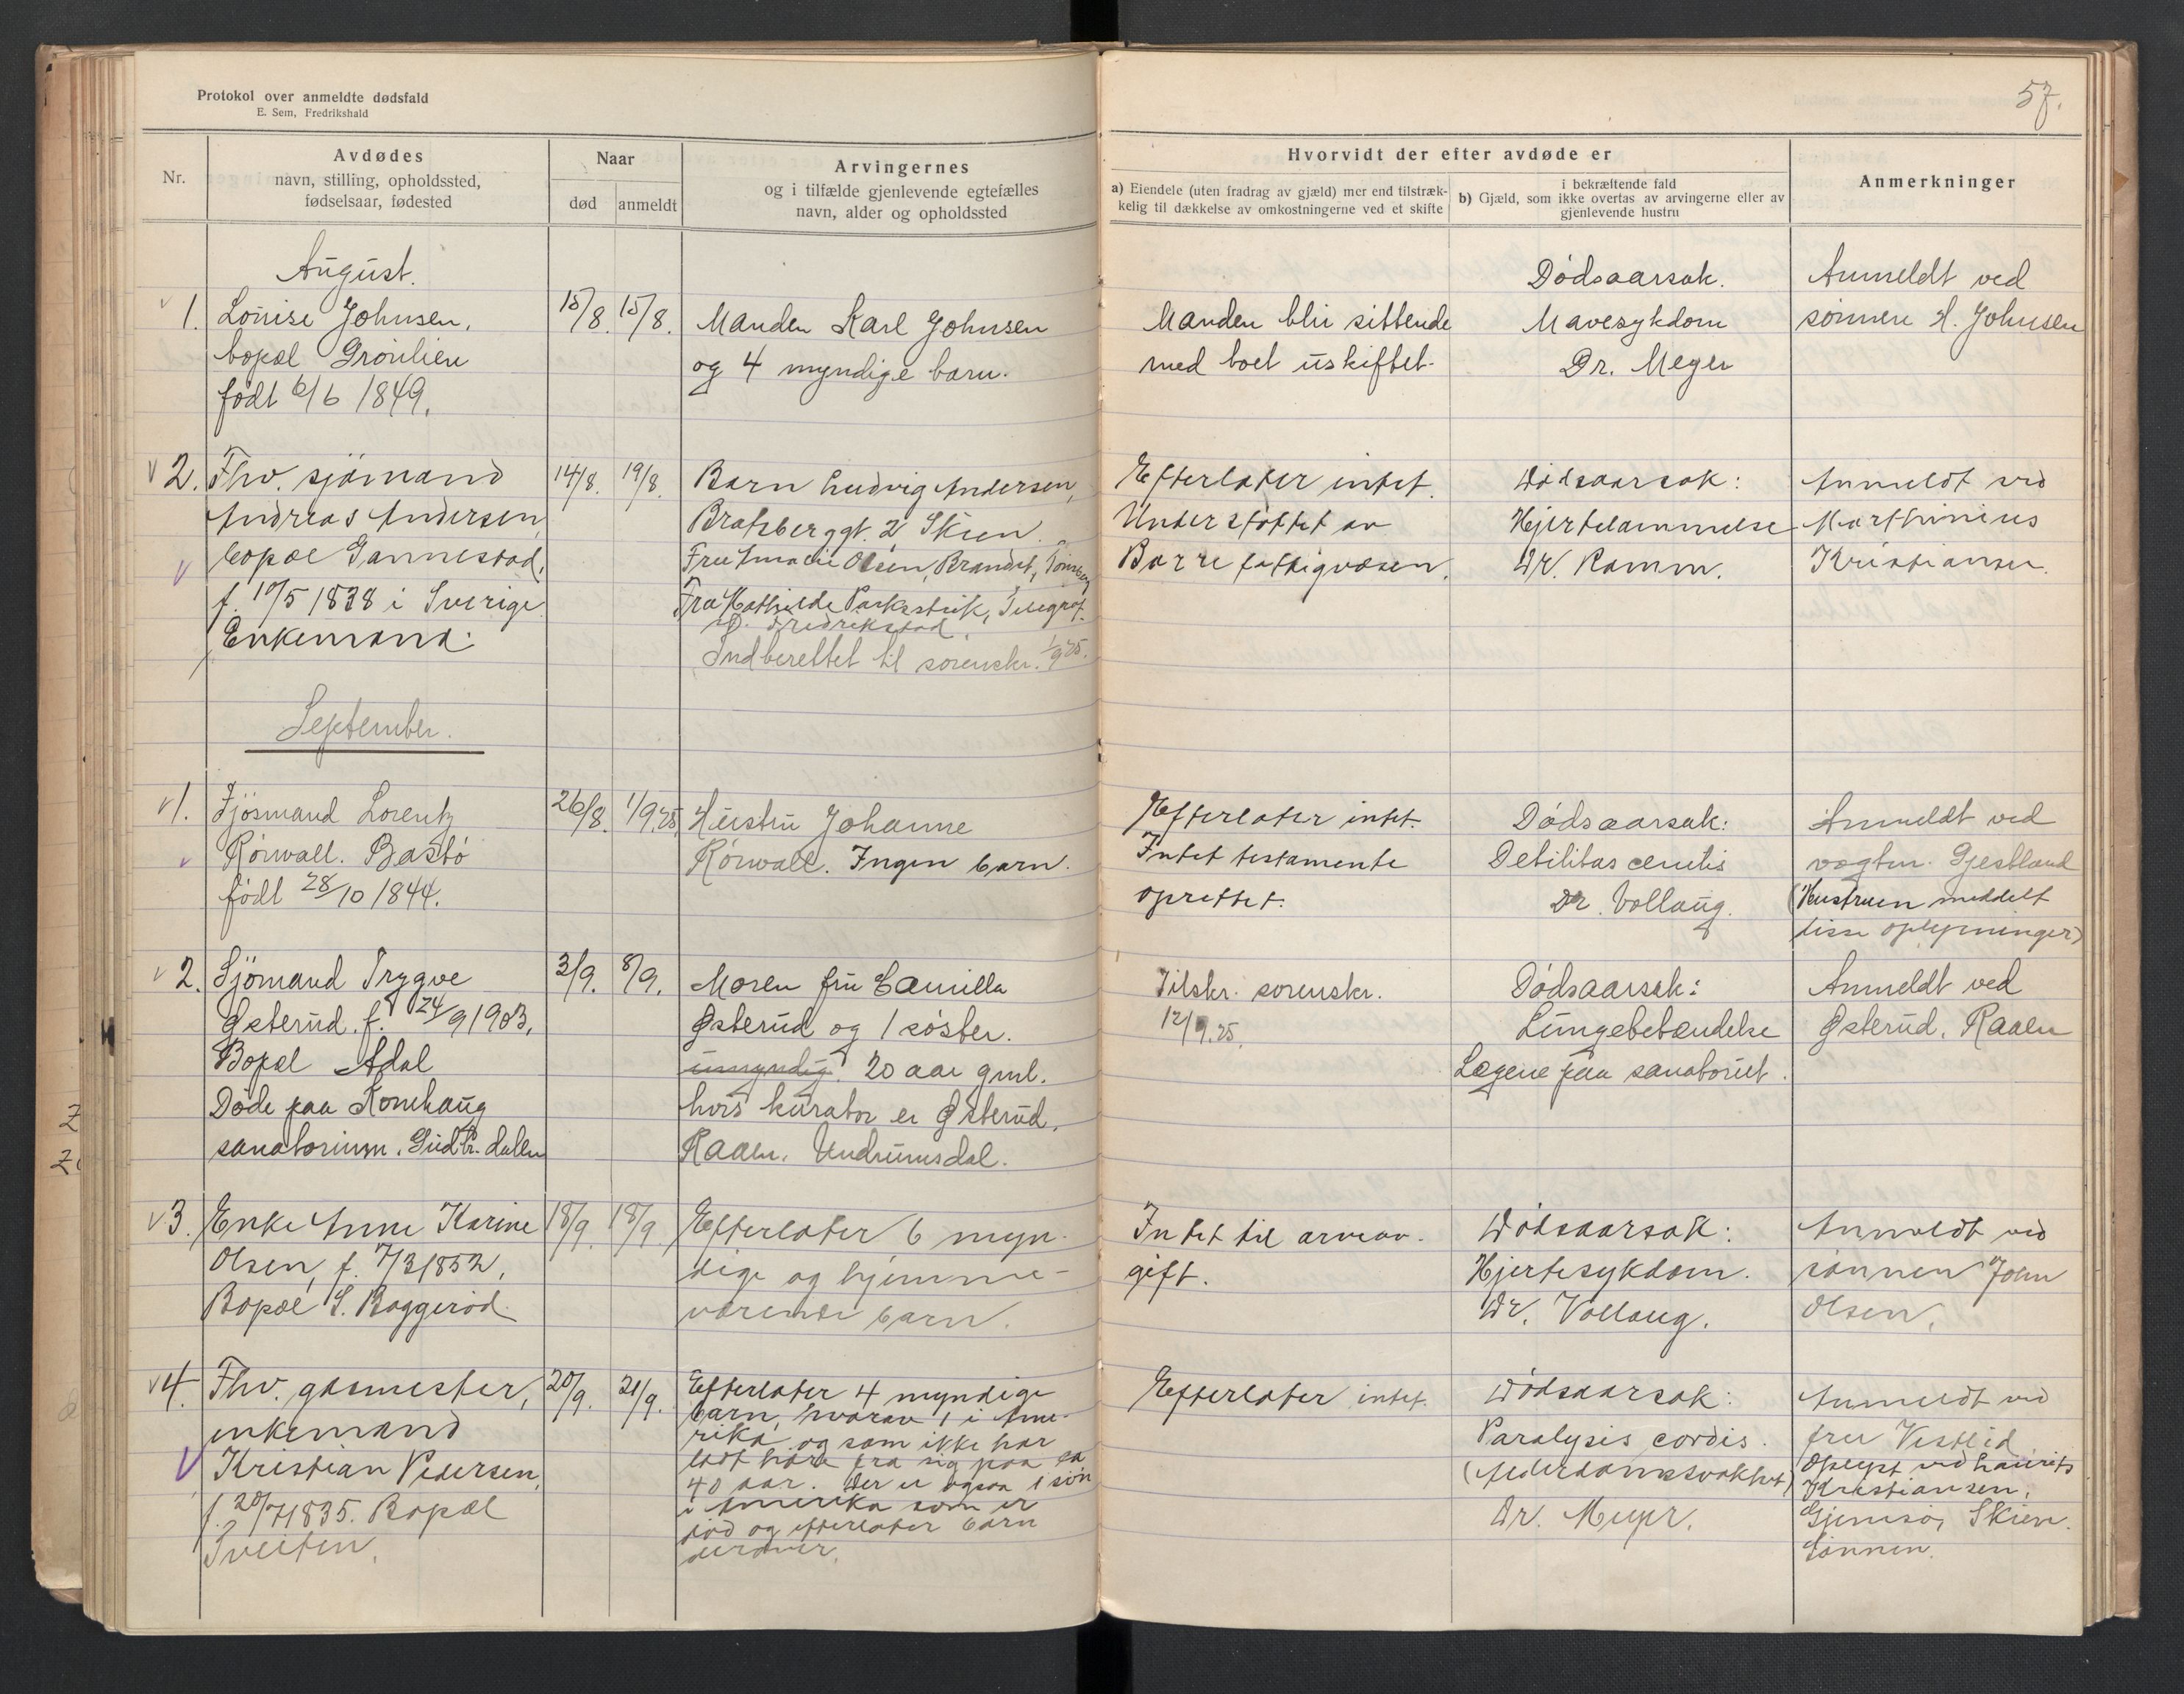 Protokol over anmeldte dødsfald
E. Sem, Fredrikshald
57.
Nr.
Avdødes
navn, stilling, opholdssted,
fødselsaar, fødested
Naar
død
anmeldt
Arvingernes
og i tilfælde gjenlevende egtefælles
navn, alder og opholdssted
Hvorvidt der efter avdøde er
a) Eiendele (uten fradrag av gjæld) mer end tilstræk-
kelig til dækkelse av omkostningerne ved et skifte
i bekræftende fald
b) Gjæld, som ikke overtas av arvingerne eller av
gjenlevende hustru
Anmerkninger
August.
1.
Louise Johnsen,
bopæl Grønlien
født 6/6 1849.
15/8.
15/8.
Manden Karl Johnsen
og 4 myndige barn.
Manden blir sittende
med boet uskiftet.
Dødsaarsak.
Mavesykdom
Dr. Meyer
Anmeldt ved
sønnen H. Johnsen
2.
Fhv. sjømand
Andreas Andersen,
bopæl Gannestad,
f. 10/5 1838 i Sverige
Enkemand.
14/8.
19/8.
Barn Ludvig Andersen,
Bratsberggt. 2 Skien.
Fru Amalie Olsen, Brandst, Tønsberg
Fra Mathilde Parkastrik, Telegraf-
Fredrikstad.
Indberettet til sorenskr. 1/9 25.
Efterlater intet.
Understøttet av
Borre fattigvæsen.
Dødsaarsak:
Hjertelammelse
Dr. Ramm.
Anmeldt ved
Marthinius
Kristiansen.
September.
1.
Sjømand Lorentz
Rörwall. Bastø
født 28/10 1844.
26/8.
1/9.25
Hustru Johanne
Rörwall. Ingen barn.
Efterlater intet.
Intet testamente
oprettet.
Dødsaarsak:
Debilitas cenilis
Dr. Vollaug.
Anmeldt ved
vogtm. Gjestland
(Hustruen meddelt
disse oplysninger)
2.
Sjømand Trygve
Østerud. f. 24/9 1903,
Bopæl Adal
Døde paa Kornhaug
sanatorium. Gudbr. dalen
3/9.
8/9.
Moren fru Camilla
Østerud og 1 søster.
umyndig. 20 aar gml.
hvis kurator er Østerud.
Raaen. Undrumsdal.
Tilskr. sorenskr.
12/9.25.
Dødsaarsak:
Lungebetændelse
Lægene paa sanatoriet.
Anmeldt ved
Østerud, Raaen
3.
Enke Anne Karine
Olsen, f. 7/3 1852,
Bopæl S. Baggerød.
18/9.
18/9.
Efterlater 6 myn-
dige og hjemme-
værende barn.
Intet til arveav-
gift.
Dødsaarsak:
Hjertesykdom.
Dr. Vollaug.
Anmeldt ved
sønnen John
Olsen.
4.
Fhv. gasmester,
enkemand
Kristian Pedersen,
f. 20/7 1835. Bopæl
Tveiten.
20/9.
21/9.
Efterlater 4 myndige
barn, hvorav 1 i Ame-
rika og som ikke har
ladt høre fra sig paa ca
40 aar. Der er ogsaa 1 søn
i Amerika som er
død og efterlater barn
derover.
Efterlater intet.
Dødsaarsak:
Paralysis cordis.
(Alderdomssvakhet)
Dr. Meyer.
Anmeldt ved
fru Vestlid
Oplyst ved Laurits
Kristiansen,
Gjemsø, Skien.
Sønnen.